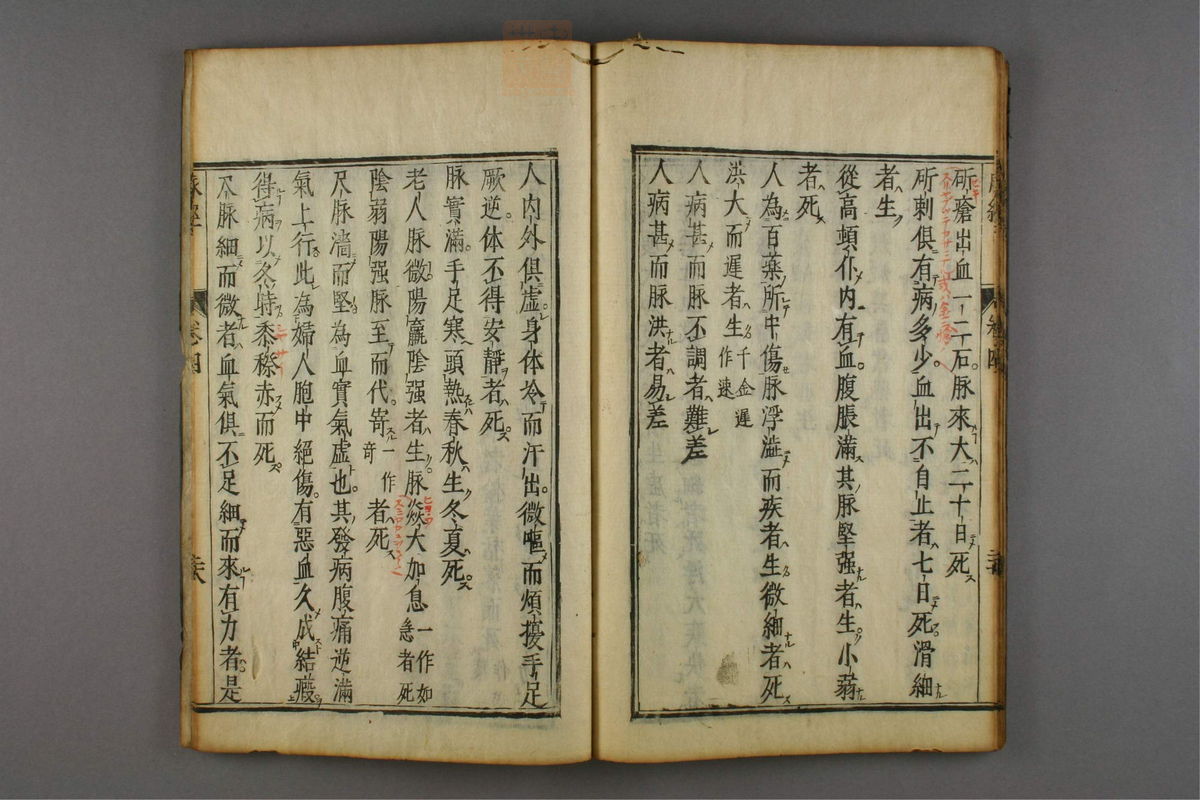 斫瘡出血一二石脉來大二十日死
斫刺俱有病多少血出不自止者七日死滑細
者生
從高頓仆内有血腹脹滿其脉堅强者生小弱
者死
人為百藥所中傷脉浮濇而疾者生微細者死
洪大而遲者生千金遲作速
人病甚而脉不調者難差
人病甚而脉洪者易差
人内外俱虛身体冷而汗出微嘔而煩擾手足
厥逆体不得安靜者死
脉實滿手足寒頭熱春秋生冬夏死
老人脉微陽羸陰强者生脉焱大加息一作如急者死
陰弱陽强脉至而代竒一作奇者死
尺脉濇而堅為血實氣虛也其發病腹痛逆滿
氣上行此為婦人胞中絕傷有惡血久成結瘕
得病以冬時黍穄赤而死
尺脉細而微者血氣俱不足細而來有力者是
脉經
卷四